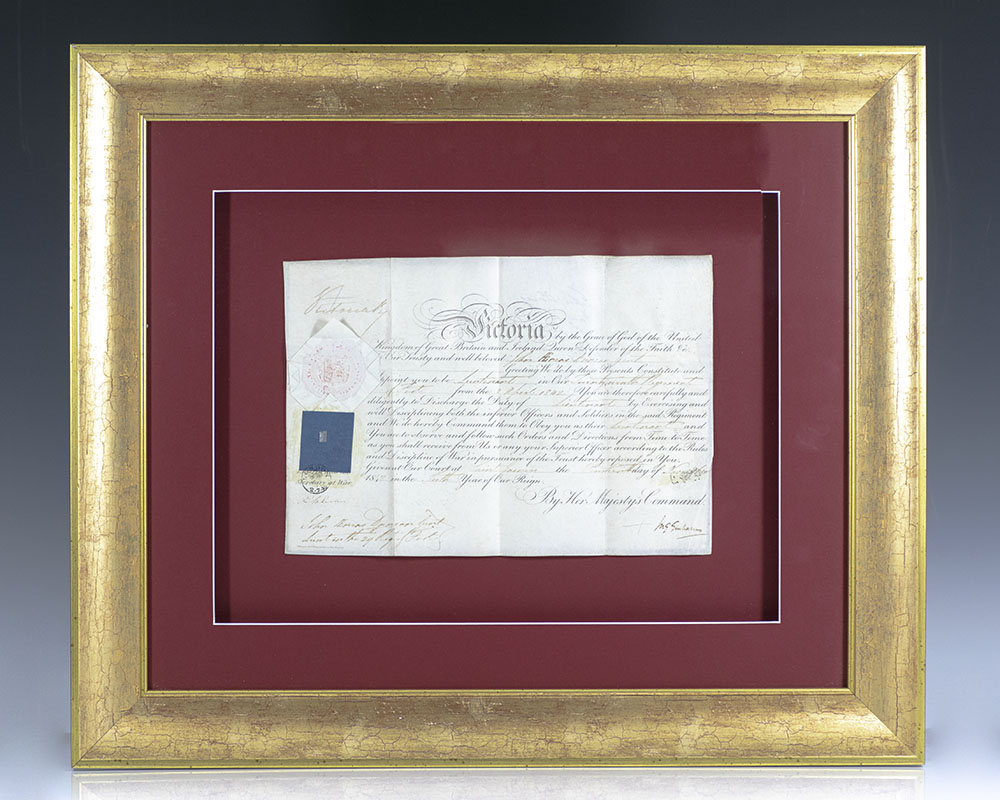 Victoria
Victoria by the Grace of God of the United
Kingdom of Great Britain and Ireland Queen Defender of the Faith &c.
To Our Trusty and well beloved John
Greeting We do by these Presents Constitute and
Appoint you to be Lieutenant in Our Regiment
of Foot from the You are therefore carefully and
diligently to Discharge the Duty of Lieutenant by Exercising and
well Disciplining both the inferior Officers and Soldiers in the said Regiment
and We do hereby Command them to Obey you as their Lieutenant and
You are to observe and follow such Orders and Directions from Time to Time
as you shall receive from Us or any your Superior Officer according to the Rules
and Discipline of War in pursuance of the Trust hereby reposed in You.
Given at Our Court at the day of
184 in the Year of Our Reign.
Secretary at War.
By Her Majesty's Command.
John Gent
Lieut in the Regt of Foot